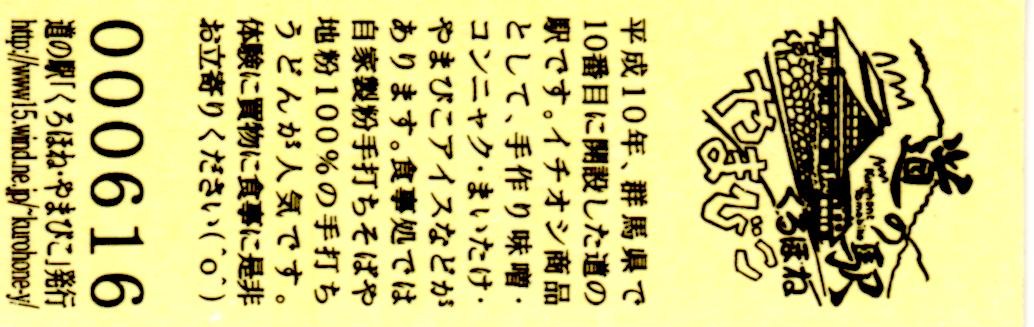 道の駅
くろほね
やまびこ
平成10年、群馬県で
10番目に開設した道の
駅です。イチオシ商品
として、手作り味噌・
コンニャク・まいたけ・
やまびこアイスなどが
あります。食事処では
自家製粉手打ちそばや
地粉100%の手打ち
うどんが人気です。
体験に買物に食事に是非
お立寄りください(^o^)
000616
道の駅「くろほね・やまびこ」発行
http://www15.wind.ne.jp/~kurohone-y/